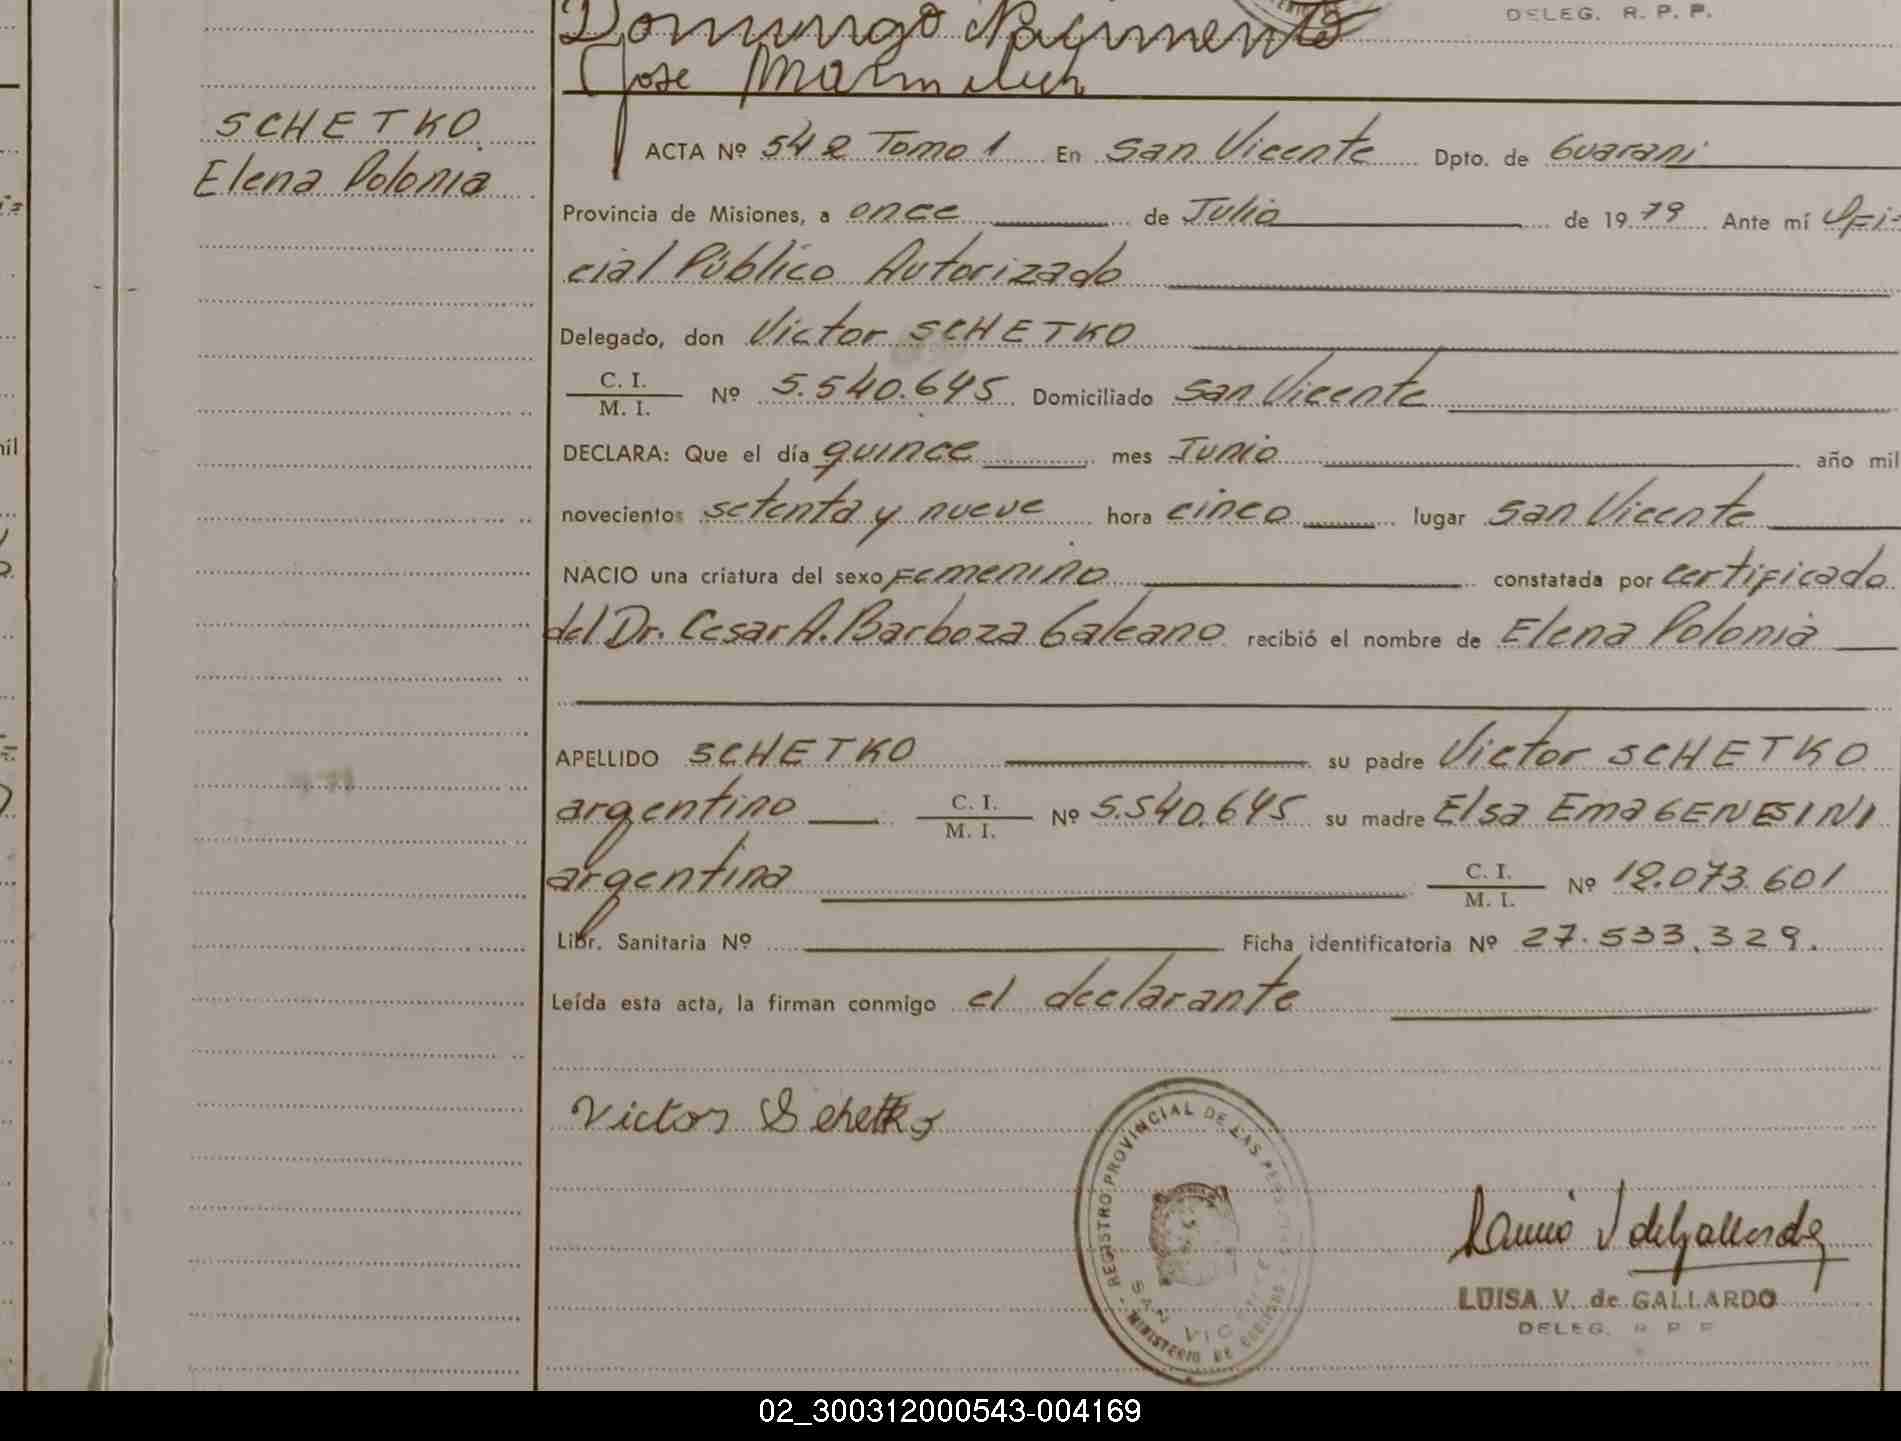 DELEG. R. P. P.
Domingo
Jose
SCHETKO
Elena Polonia
ACTA Nº 542 Tomo 1 En San Vicente Dpto. de Guarani
Provincia de Misiones, a once de Julio de 1979 Ante mí Ofi-
cial Público Autorizado
Delegado, don Victor SCHETKO
C. I.
M. I. Nº 5.540.645 Domiciliado San Vicente
DECLARA: Que el día quince mes Junio año mil
novecientos setenta y nueve hora cinco lugar San Vicente
NACIO una criatura del sexo Femenino constatada por certificado
del Dr. Cesar A. Barboza Galeano recibió el nombre de Elena Polonia
APELLIDO SCHETKO su padre Victor SCHETKO
argentino C. I.
M. I. Nº 5.540.645 su madre Elsa Ema GENESINI
argentina C. I.
M. I. Nº 12.073.601
Libr. Sanitaria Nº Ficha identificatoria Nº 27.533.329.
Leída esta acta, la firman conmigo el declarante
Victor Schetko
REGISTRO PROVINCIAL DE LAS
SAN VICENTE
MINISTERIO DE GOBIERNO
LUISA V. de GALLARDO
DELEG. R P P
02_300312000543-004169